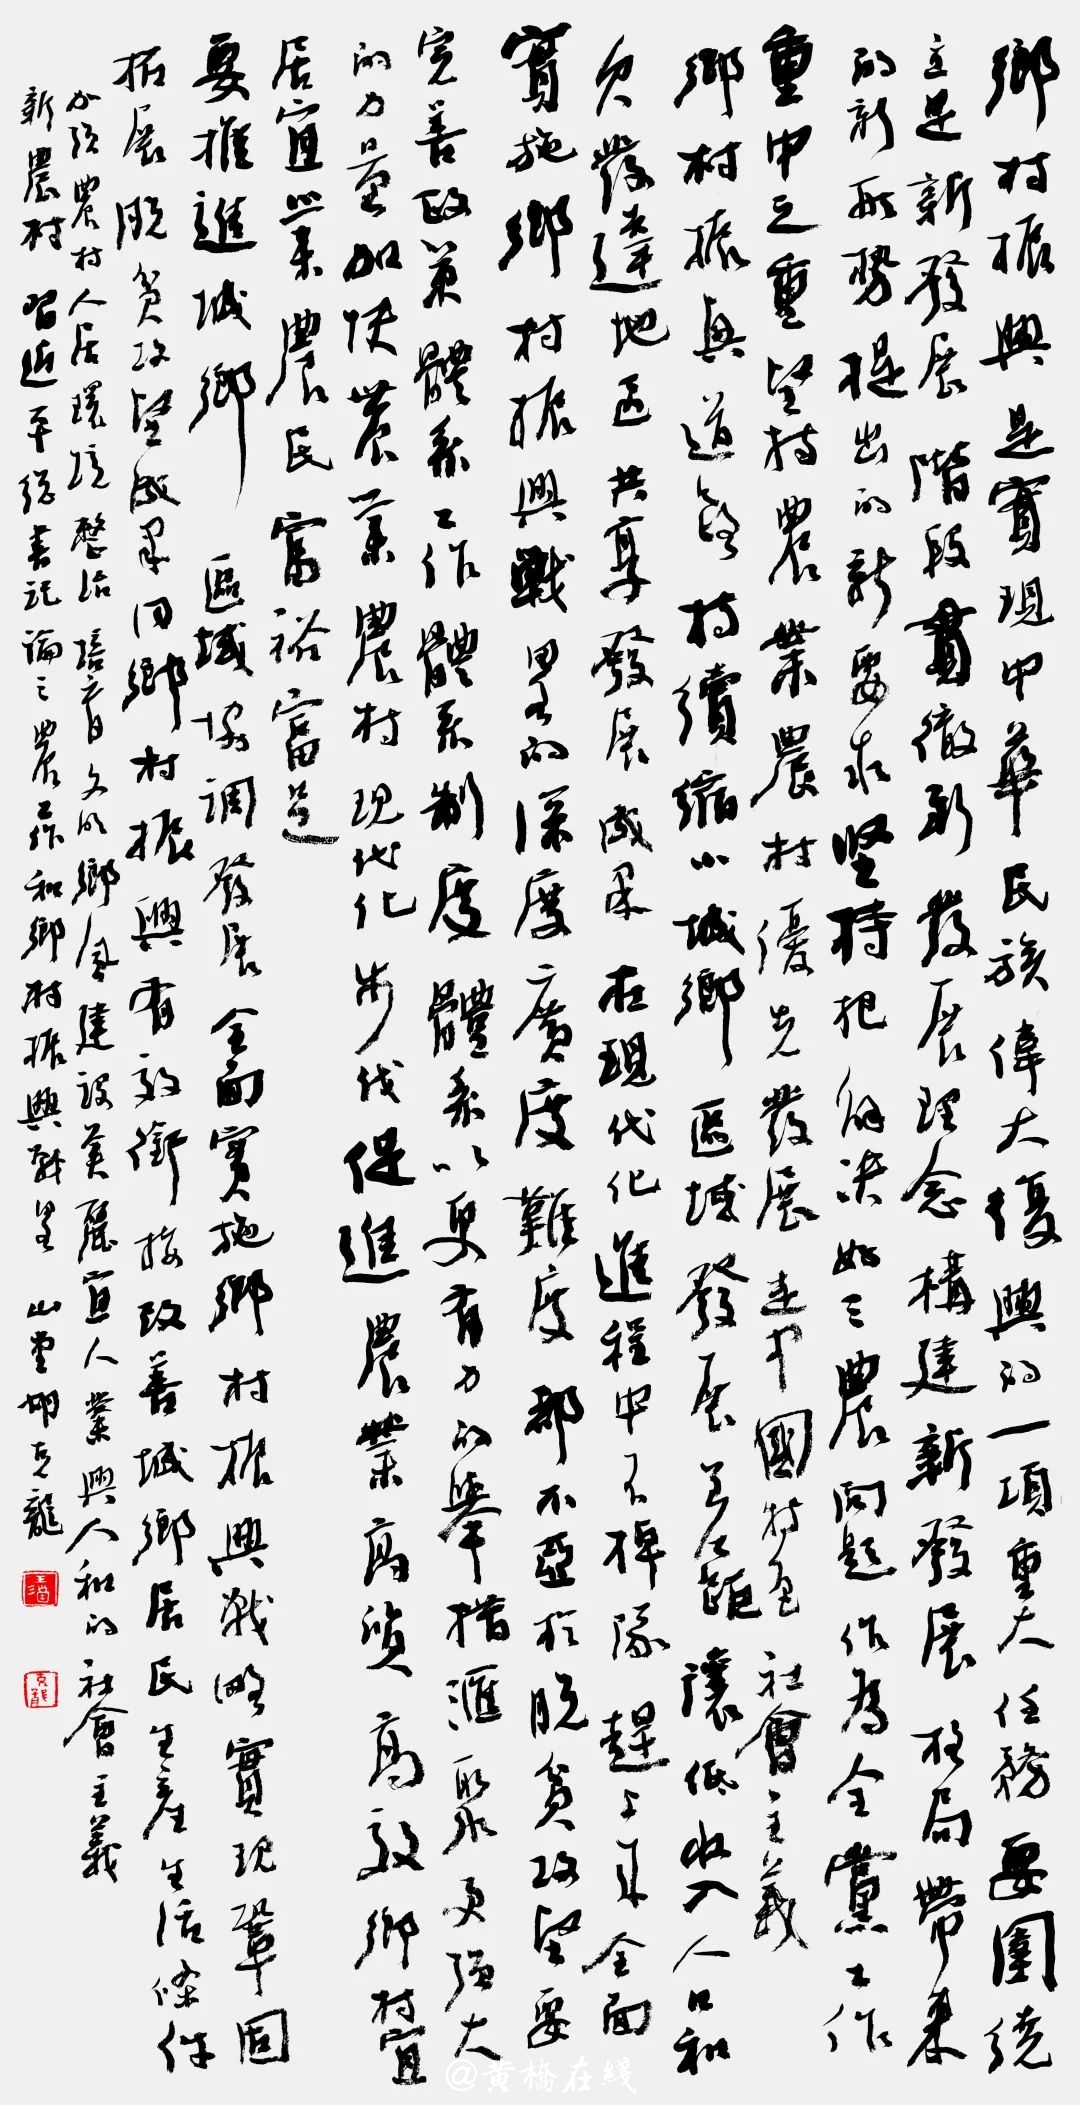 鄉村振興是實現中華民族偉大復興的一項重大任務要圍繞
立足新發展階段貫徹新發展理念構建新發展格局帶來
的新形勢提出的新要求堅持把解決好三農問題作為全黨工作
重中之重堅持農業農村優先發展走中國特色社會主義
鄉村振興道路持續縮小城鄉區域發展差距讓低收入人口和
欠發達地區共享發展成果在現代化進程中不掉隊趕上來全面
實施鄉村振興戰略的深度廣度難度都不亞於脫貧攻堅要
完善政策體系工作體系制度體系以更有力的舉措匯聚更強大
的力量加快農業農村現代化步伐促進農業高質高效鄉村宜
居宜業農民富裕富足
要推進城鄉區域協調發展全面實施鄉村振興戰略實現鞏固
拓展脫貧攻堅成果同鄉村振興有效銜接改善城鄉居民生產生活條件
加強農村人居環境整治培育文明鄉風建設美麗宜人業興人和的社會主義
新農村 習近平總書記論三農工作和鄉村振興戰略 山堂胡克龍
@黄橋在綫